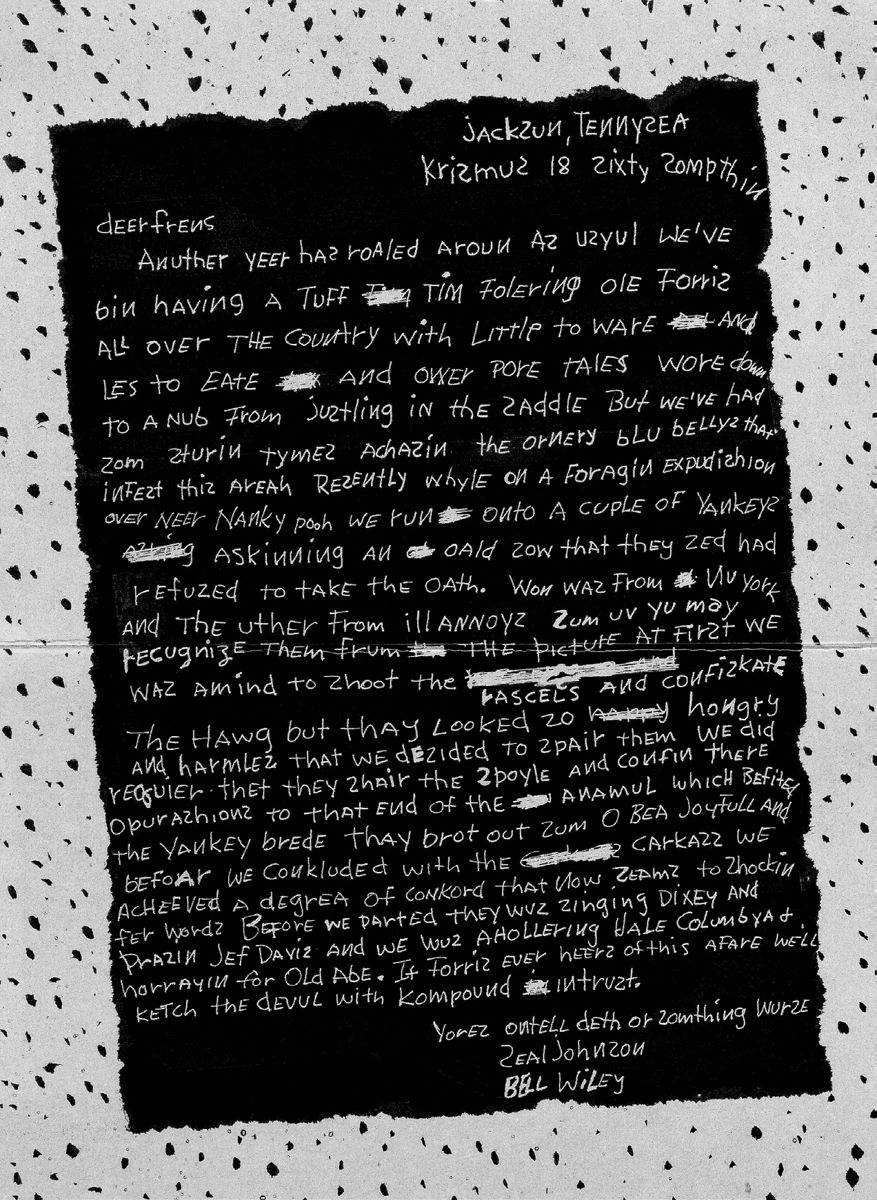 jACKSUN, TENNYSEA
Krismus 18 sixty sompthin
dEErfrENS
Anuther yEEr has roAled Aroun As usyul WE'VE
bin hAving A TUFF TIM Folering OlE Forris
ALL OVEr THE COUNTRY with Little to WARE AND
LES to EATE AND OWER PORE TALES WOREdown
to A NUB From justling in the SADDLE But WE'VE HAD
som sturin tymes AchAsin the ornery blu bellys that
inFEst this AREAh REsENtly whyle on A ForAgin Expudishion
OVER NEEr NANKy pooh WE run onto A cuple OF YANKEYS
ASkinning AN OAld sow that they SED HAD
rEFUSED to tAKE the OATH. Won WAS From Nu york
AND THE uther From illANNOYS Sum uv yu mAy
rEcugnizE THEM Frum THE picturE At First WE
WAS Amind to shoot the
rASCELS AND CONFISKATE
THE HAWg but thAy LOOKED SO hongry
AND hArmles thAt WE dESIded to spAir them WE did
rEQUIEr thet they shAir the SpoylE AND CONFIN THErE
OpurAshions to thAt END of the ANAMUL which BEFITED
the YANKEY brEDE thAY brot out sum O BEA JOYFULL AND
BEFOAr WE CONKluded with the CArKASS WE
ACHEEVED A dEgrEA OF CONKORD thAt NOW SEAMS to shockin
FEr WORDS BEFORE WE PArtEd they WUS singing DIXEY AND
PrAsin JEF DAVis AND WE WUS AhollEring HALE COlumbyA &
horrAyin for Old AbE. IF Forris EVER hEErs of this AFArE WE'LL
kEtch the dEvul with Kompound intrust.
YorES ontell dEth or somthing WURSE
SEAl Johnson
BELL WiLEy